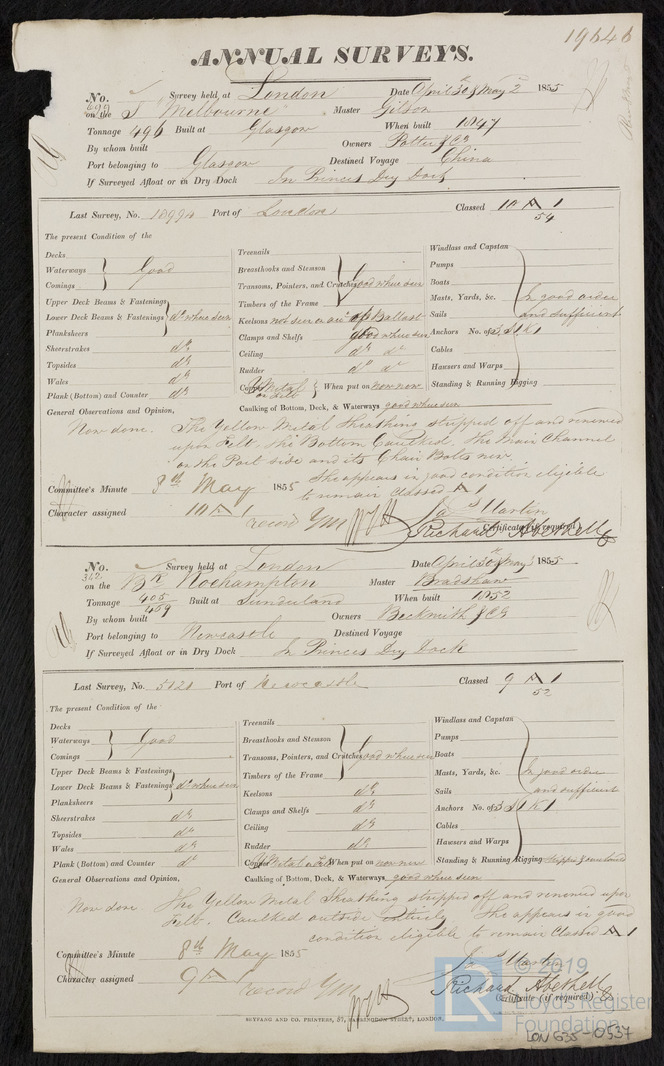 19646
ANNUAL SURVEYS.
No. 699 Survey held at London Date April 30 & May 2 1855
on the Melbourne Master Gilson
Tonnage 496 Built at Glasgow When built 1847
By whom built Owners Potter & Co
Port belonging to Glasgow Destined Voyage China
If Surveyed Afloat or in Dry Dock In Princes Dry Dock
Last Survey, No. 18994 Port of London Classed 10 A 1
54
The present Condition of the
Decks
Waterways Good
Comings
Upper Deck Beams & Fastenings
Lower Deck Beams & Fastenings do where seen
Planksheers
Sheerstrakes do
Topsides do
Wales do
Plank (Bottom) and Counter do
Treenails
Breasthooks and Stemson
Transoms, Pointers, and Crutches Good where seen
Timbers of the Frame
Keelsons not seen on acct of Ballast
Clamps and Shelfs good where seen
Ceiling do do
Rudder do do
Copper Y Metal on Felt When put on now new
Caulking of Bottom, Deck, & Waterways good where seen
Windlass and Capstan
Pumps
Boats
Masts, Yards, &c. In good order
Sails and sufficient
Anchors No. of 3 S 1 K 1
Cables
Hausers and Warps
Standing & Running Rigging
General Observations and Opinion,
Now done. The Yellow Metal sheathing stripped off and renewed
upon Felt. The Bottom Caulked. The Main Channel
on the Port side and its Chain Bolts new.
She appears in good condition eligible
to remain Classed A 1
Committee's Minute 8th May 1855
Character assigned 10 A 1
record YM
Jas Martin
Certificate (if required)
Richard Abethell
No. 342 Survey held at London Date April 30 & May 1855
on the Bk Roehampton Master Bradshaw
Tonnage 405/459 Built at Sunderland When built 1852
By whom built Owners Beckwith & Co
Port belonging to Newcastle Destined Voyage
If Surveyed Afloat or in Dry Dock In Princes Dry Dock
Last Survey, No. 5121 Port of Newcastle Classed 9 A 1
52
The present Condition of the
Decks
Waterways Good
Comings
Upper Deck Beams & Fastenings
Lower Deck Beams & Fastenings do where seen
Planksheers
Sheerstrakes do
Topsides do
Wales do
Plank (Bottom) and Counter do
Treenails
Breasthooks and Stemson
Transoms, Pointers, and Crutches Good where seen
Timbers of the Frame
Keelsons do
Clamps and Shelfs do
Ceiling do
Rudder do
Copper Y Metal on Felt When put on now new
Caulking of Bottom, Deck, & Waterways good where seen
Windlass and Capstan
Pumps
Boats
Masts, Yards, &c. In good order
Sails and sufficient
Anchors No. of 3 S 1 K 1
Cables
Hausers and Warps
Standing & Running Rigging
General Observations and Opinion,
Now done The Yellow Metal Sheathing stripped off and renewed upon
Felt. Caulked outside entirely. She appears in good
condition eligible to remain Classed A 1
Committee's Minute 8th May 1855
Character assigned 9 A 1
record YM
Jas Martin
Richard Abethell
Certificate (if required)
SEYFANG AND CO. PRINTERS, 57, FARRINGDON STREET, LONDON.
© 2019
LR Lloyd's Register
Foundation
LON 635-0537